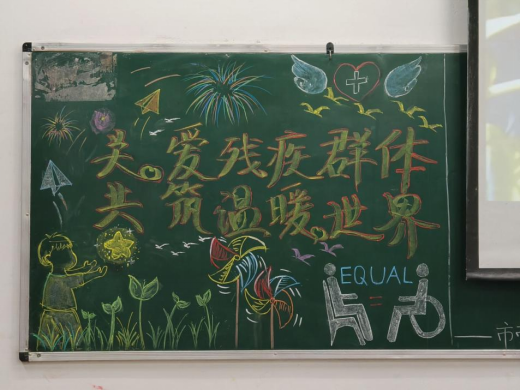 关爱残疾群体
共筑温暖世界
EQUAL
=